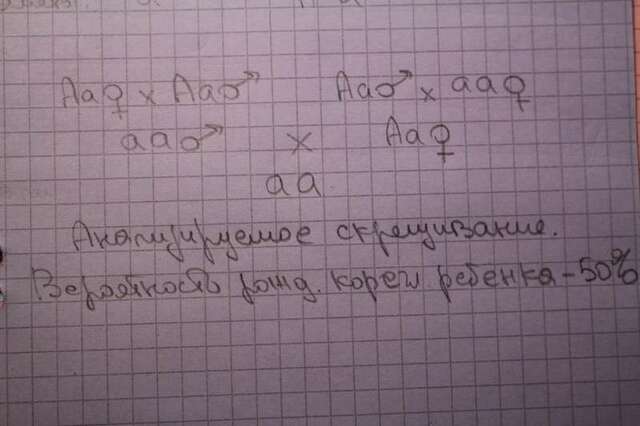 Aa♀ x Aa♂ Aa♂ x aa♀
aa♂ x Aa♀
aa
Анализируемое скрещивание.
Вероятность рожд. кореш ребенка - 50%